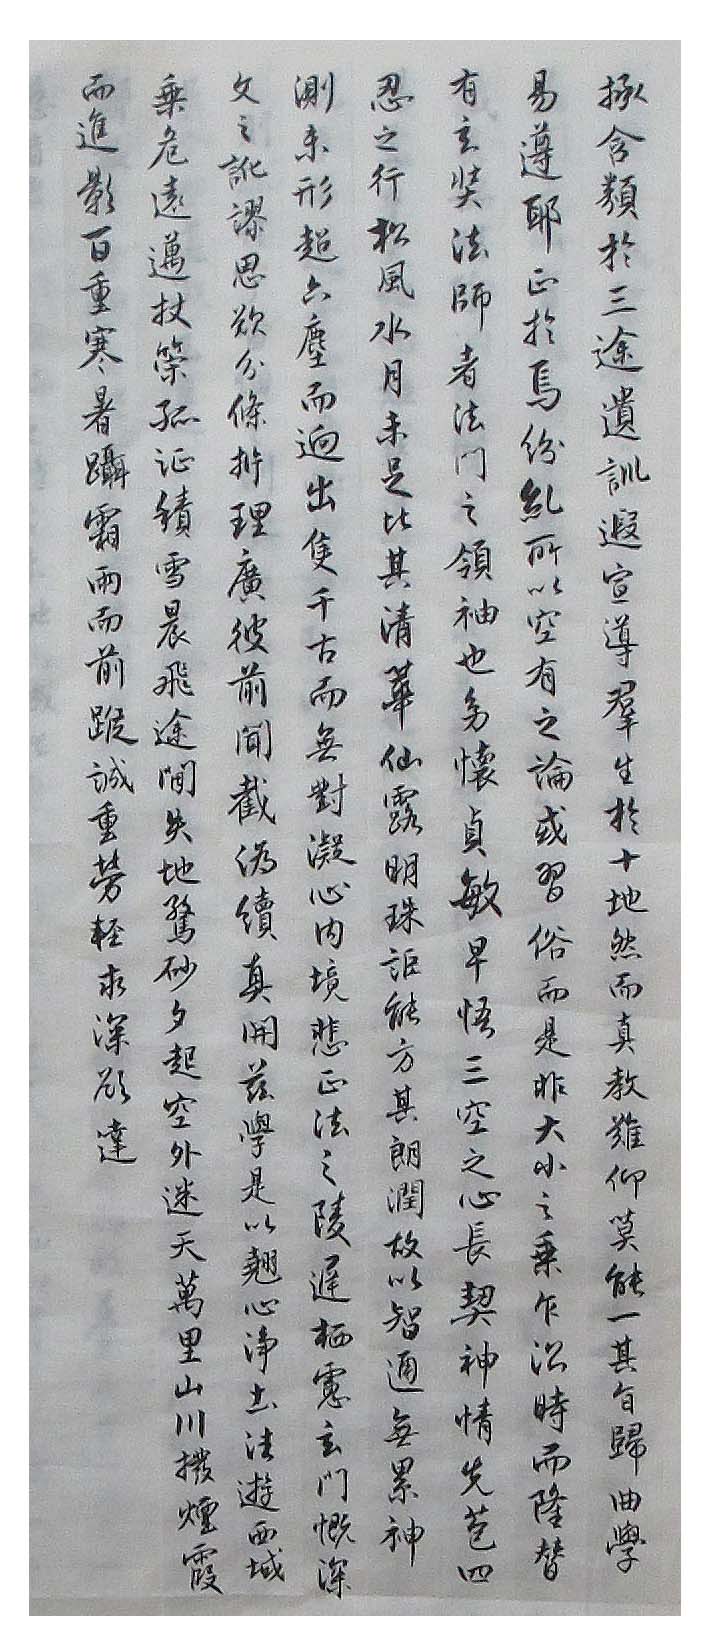 拯含類於三途遺訓遐宣導羣生於十地然而真教難仰莫能一其旨歸曲學
易遵耶正於焉紛糺所以空有之論或習俗而是非大小之乗乍沿時而隆替
有玄奘法師者法門之領袖也㓜懷貞敏早悟三空之心長契神情先苞四
忍之行松風水月未足比其清華仙露明珠詎能方其朗潤故以智通無累神
測未形超六塵而逈出隻千古而無對凝心内境悲正法之陵遲栖慮玄門慨深
文之訛謬思欲分條㭊理廣彼前聞截偽續真開兹學是以翹心淨土法遊西域
乗危遠邁杖策孤征積雪晨飛途間失地驚砂夕起空外迷天萬里山川撥煙霞
而進影百重寒暑躡霜雨而前蹤誠重勞輕求深欲達